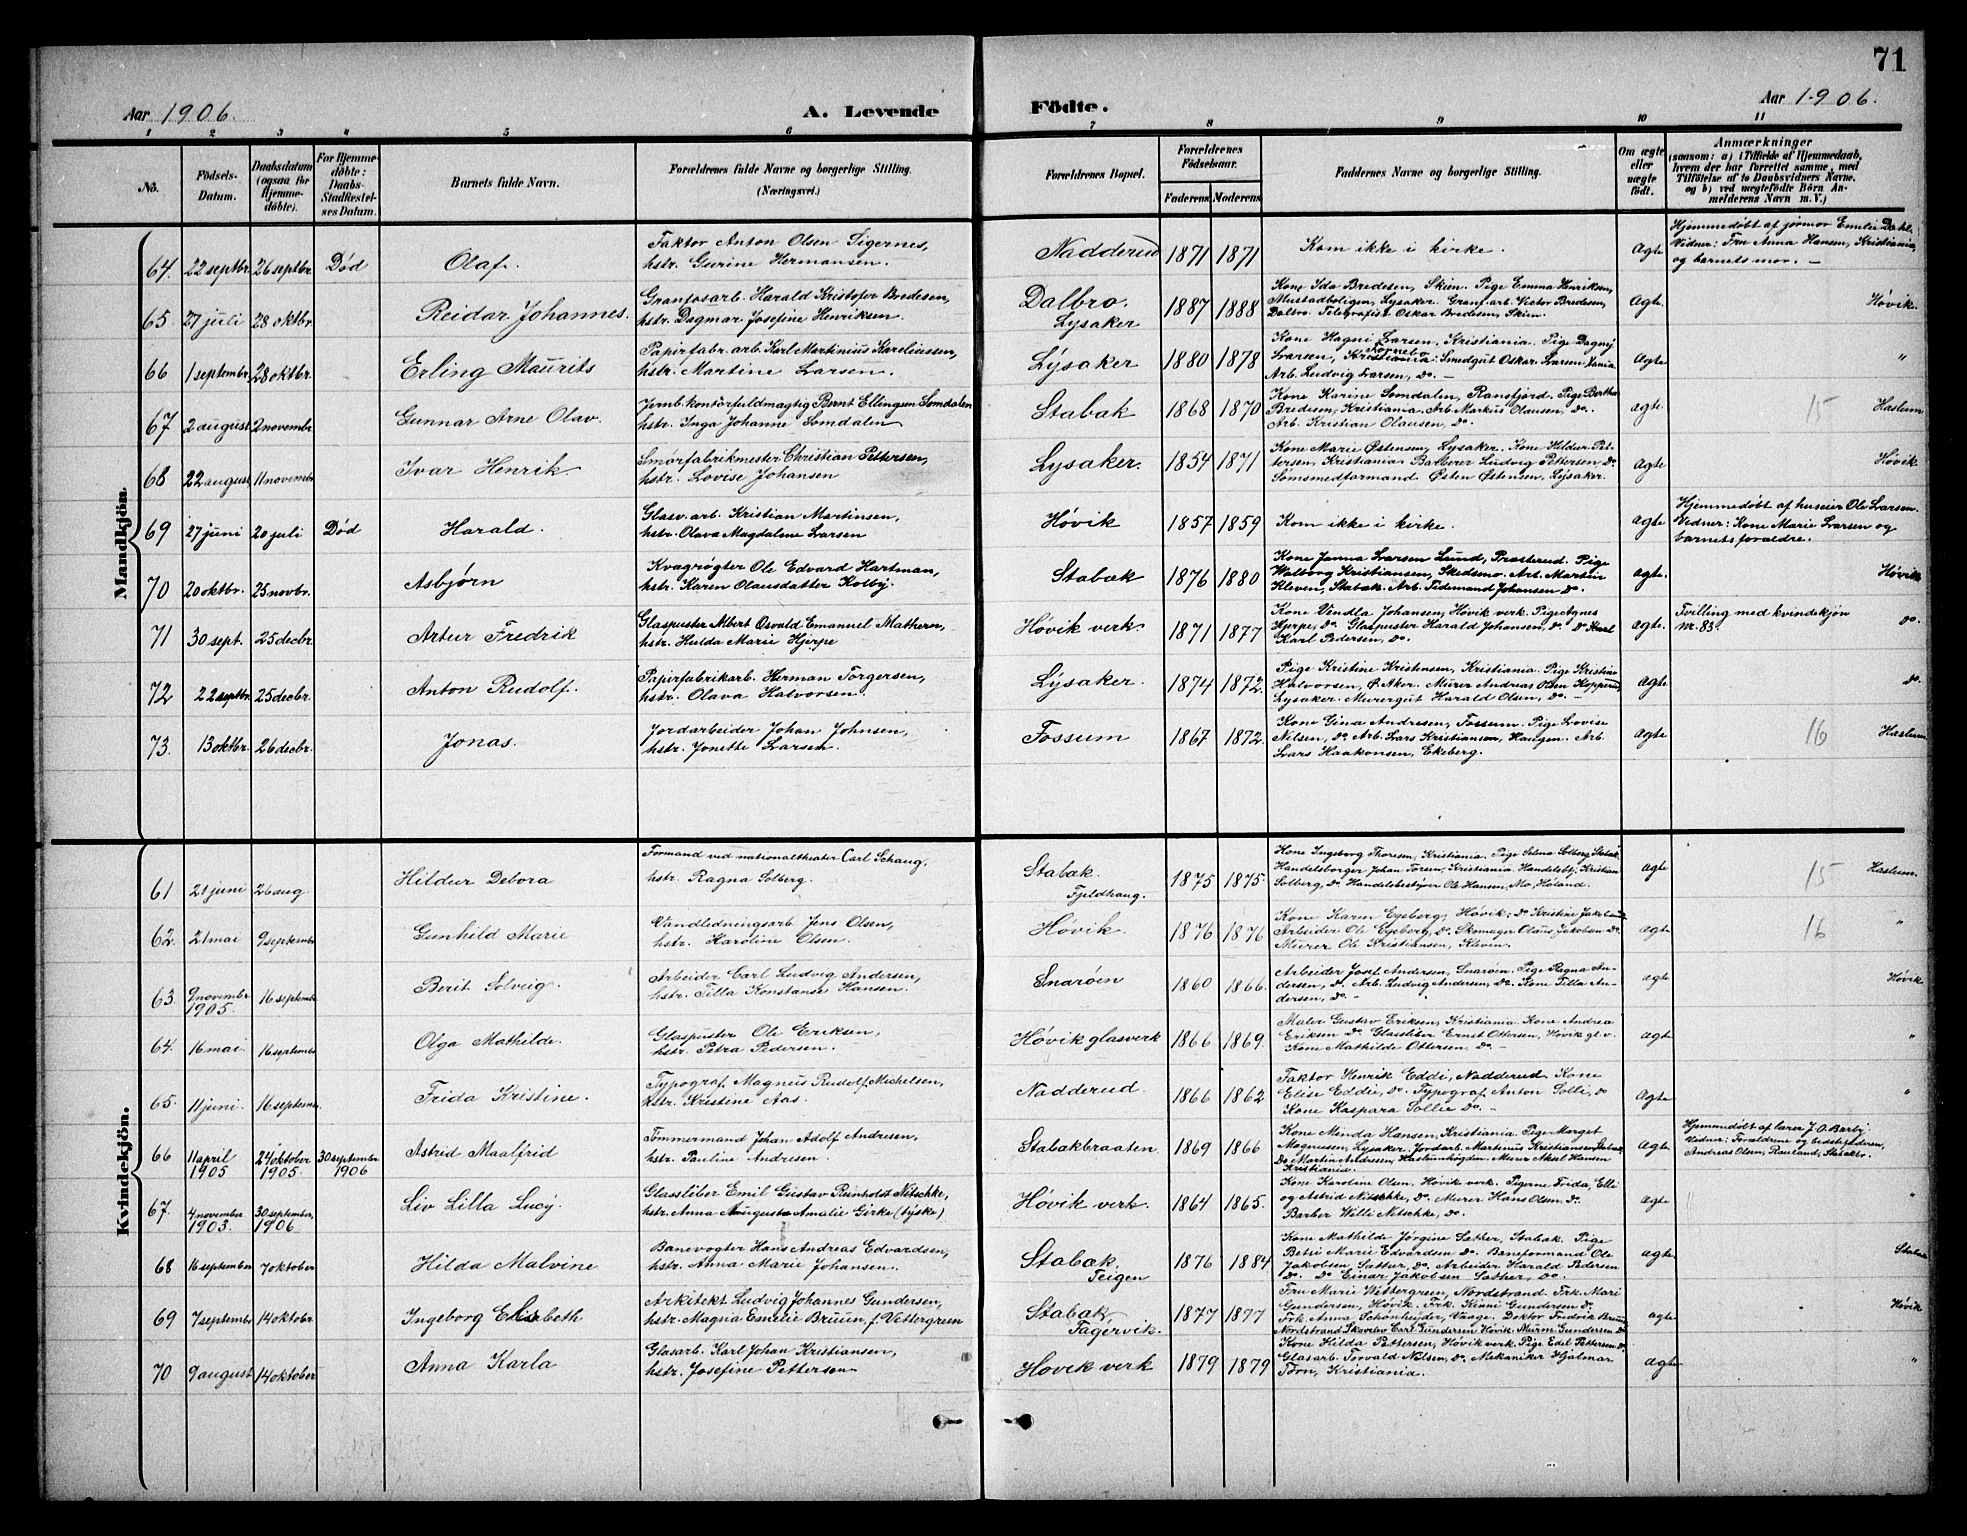 71
Aar 1906.
A. Levende
Födte.
Aar 1906.
1 2 3 4 5 6 7 8 9 10 11
No.
Födsels-
Datum.
Daabsdatum
(ogsaa for
Hjemme-
döbte).
For Hjemme-
döbte:
Daabs-
Stadfæstel-
ses Datum.
Barnets fulde Navn.
Forældrenes fulde Navne og borgerlige Stilling.
(Næringsvei.)
Forældrenes Bopæl.
Forældrenes
Födselsaar.
Faderens Moderens
Faddernes Navne og borgerlige Stilling.
Om ægte
eller
uægte
født.
Anmærkninger
(saasom: a) i Tilfælde af Hjemmedaab,
hvem der har forrettet samme, med
Tilföielse af to Daabsvidners Navne,
og b) ved uægtefödte Börn An-
melderens Navn m. V.)
Mandkjön.
64. 22 septbr. 26 septbr. Död Olaf.
Faktor Anton Olsen Sigernes,
hstr. Gurine Hermansen.
Nadderud 1871 1871 Kom ikke i kirke. ægte
Hjemmedøbt af jormor Emelie Dahl.
Vidner: Fru Anna Hansen, Kristiania,
og barnets mor. —
65. 27 juli 28 oktbr. Reidar Johannes.
Granfosarb. Harald Kristofer Bredesen,
hstr. Dagmar Josefine Henriksen.
Dalbro.
Lysaker
1887 1888
Kone Ida Bredesen, Skien. Pige Emma Henriksen,
Mustadboligen, Lysaker. Granf. arb. Victor Bredesen,
Dalbro. Telegrafist Oskar Bredesen, Skien.
ægte Høvik.
66 1 septembr. 28 oktbr. Erling Maurits
Papirfabr. arb. Karl Martinius Kareliussen,
hstr. Martine Larsen.
Lysaker 1880 1878
Kone Hagni Larsen, Kristiania. Pige Dagny
Larsen, Kristiania. Smedgut Oskar Larsen,
Arb. Ludvig Larsen, do. —
ægte "
67. 2 august 2 novembr. Gunnar Arne Olav.
Jernb. kontorfuldmægtig Bernt Ellingsen Somdalen
hstr. Inga Johanne Somdalen
Stabæk 1868 1870
Kone Karine Somdalen, Ransfjord. Pige Bertha
Bredesen, Kristiania. Arb. Markus Olausen, do.
Arb. Kristian Olausen, do.
ægte 15 Haslum
68. 22 august, 11 novembr. Ivar Henrik
Smörfabrikmester Christian Pettersen,
hstr. Lovise Johansen
Lysaker. 1854 1871
Kone Marie Østensen, Lysaker. Kone Hildur Pet-
tersen, Kristiania. Barberer Ludvig Pettersen do.
Sömsmedformand Østen Østensen, Lysaker.
ægte Høvik
69. 27 juni 20 juli Död Harald.
Glasv. arb. Kristian Martinsen,
hstr. Olava Magdalene Larsen
Høvik 1857 1859 Kom ikke i kirke. ægte
Hjemmedøbt af huseier Ole Larsen.
Vidner: Kone Marie Larsen og
barnets forældre.
70 20 oktbr. 25 novbr. Asbjørn
Kvægrøgter Ole Edvard Hartman,
hstr. Karen Olausdatter Kolby.
Stabæk 1876 1880
Kone Janna Larsen Lund, Presterud. Pige
Walborg Kristiansen, Skedsmo. Arb. Martin
Kleven, Stabæk. Arb. Tidemand Johansen do.
ægte. Høvik
71 30 sept. 25 decbr. Artur Fredrik
Glaspuster Albert Osvald Emanuel Mathern,
hstr. Hulda Marie Hjerpe
Høvik verk. 1871 1877
Kone Vindla Johansen, Høvik verk. Pige Agnes
Hjerpe, do. Glaspuster Harald Johansen, do. do Karl
Karl Pedersen, do.
ægte. Tvilling med kvindekjøn
nr. 83. do.
72 22 septbr. 25 decbr. Anton Rudolf.
Papirfabrikarb. Herman Torgersen,
hstr. Olava Halvorsen.
Lysaker. 1874 1872.
Pige Kristine Kristensen, Kristiania. Pige Kristine
Halvorsen, Ø. Aker. Murer Andreas Olsen
Lysaker. Murergut Harald Olsen, do. —
ægte do.
73. 13 oktbr. 26 decbr. Jonas.
Jordarbeider Johan Johnsen,
hstr. Jonette Larsen.
Fossum 1867 1872.
Kone Gina Andresen, Fossum. Pige Lovise
Nilsen, do. Arb. Lars Kristiansen, Haugen. Arb.
Lars Haakonsen, Ekeberg.
ægte 16 Haslum
Kvindekjön.
61 21 juni 26 aug Hildur Debora
Formand ved nationaltheater Carl Schaug,
hstr. Ragna Solberg.
Stabæk.
Fjeldhaug.
1875 1875.
Kone Ingeborg Thoresen, Kristiania. Pige Selma Solberg Stabæk.
Handelsborger Johan Toresen, Kristiania. Handelsbtj. Kristian
Solberg, do. Handelsbestyrer Ole Hansen, Mo, Höland.
ægte 15 Haslum.
62. 21 mai 9 septembr Gunhild Marie
Vandledningsarb. Jens Olsen,
hstr. Karoline Olsen.
Høvik. 1876 1876
Kone Karen Egeberg, Høvik. do Kristine Jakobsen
Arbeider Ole Egeberg, do. Skomager Olaus Jakobsen do.
Murer Ole Kristiansen, Kleven.
ægte 16 "
63. 9 novembr
1905. 16 septembr Berit Solveig.
Arbeider Carl Ludvig Andersen,
hstr. Tilla Konstanse Hansen.
Snarøen 1860 1866.
Arbeider Josef Andersen, Snarøen. Pige Ragna An-
dersen, do. Arb. Ludvig Andersen, do. Kone Tilla An-
dersen, do. —
ægte Høvik
64. 16 mai. 16 septembr Olga Mathilde.
Glaspuster Ole Eriksen,
hstr. Petra Pedersen.
Høvik glasverk 1866 1869.
Maler Gustav Eriksen, Kristiania. Kone Andrea
Eriksen do. Glassliber Ernst Ottersen, Høvik gl.v.
Kone Mathilde Ottersen do. —
ægte "
65. 11 juni. 16 septembr. Frida Kristine.
Typograf Magnus Rudolf Michelsen,
hstr. Kristine Aas.
Nadderud 1866 1862
Faktor Henrik Eddi, Nadderud. Kone
Elise Eddie, do. Typograf Anton Solli, do
Kone Kaspara Sollie do. —
ægte "
66 11 april
1905 24 oktober
1905. 30 septembr
1906 Astrid Maalfrid
Tømmermand Johan Adolf Andresen,
hstr. Pauline Andresen.
Stabækbraaten 1869 1866
Kone Minda Hansen, Kristiania. Pige Marget
Magnussen, Lysaker. Jordarb. Martinus Kristiansen, Stabæk
do. Martin Andresen, Haslumhøgden. Murer Aksel Hansen
Kristiania.
ægte
Hjemmedøbt af lærer J. O. Barby.
Vidner: Forældrene og bedstefaderen,
Andreas Olsen, Rauland, Stabækbr.
67. 4 november
1903. 30 september,
1906 Liv Lilla Lucy.
Glassliber Emil Gustav Reinholdt Nitschke,
hstr. Anna Augusta Amalie Girke (tyske)
Høvik verk. 1864 1865.
Kone Karoline Olsen, Høvik verk. Pigerne Frida, Elli
og Astrid Nitschke, do. Murer Hans Olsen do.
Barber Willi Nitschke, do.
ægte "
68 16 september 7 oktober Hilda Malvine
Banevogter Hans Andreas Edvardsen,
hstr. Anna Marie Johansen.
Stabæk
Teigen
1876 1884
Kone Mathilde Jørgine Sæther, Stabæk. Pige
Betzi Marie Edvardsen do. Baneformand Ole
Jakobsen Sættur, do. Arbeider Harald Pedersen
do. do Einar Jakobsen Sættur, do.
ægte Stabæk
69 7 septembr 14 oktobr. Ingeborg Elisabeth
Arkitekt Ludvig Johannes Gundersen,
hstr. Magna Emelie Bruun, f. Vettergreen
Stabæk
Fagervik.
1877 1877
Fru Marie Wittergreen, Nordstrand. Frk. Mari
Gundersen, Høvik. Frk. Kinni Gundersen do.
Frk. Anna Schønheyder, Vaage. Doktor Fredrik Bruun
Nordstrand. Skovelev Carl Gundersen Høvik. Murm. Gundersen do
ægte Høvik
70 9 august 14 oktober Anna Karla
Glasarb. Karl Johan Kristiansen,
hstr. Josefine Pettersen
Høvik verk 1879 1879
Kone Hilda Pettersen, Høvik verk. Pige Edel Pettersen do.
Glasarb. Torvald Nilsen, do. Mekaniker Hjalmar
Törn, Kristiania.
ægte "